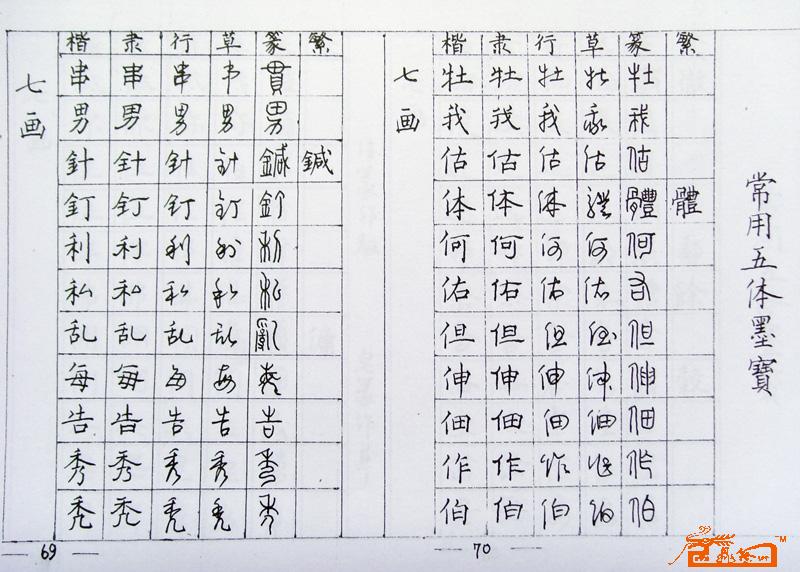 常用五体墨寶
七画
楷 隶 行 草 篆 繁
牡 牡 牡 牡 牡
我 我 我 我 我
估 估 估 估 估
体 体 体 體 體 體
何 何 何 何 何
佑 佑 佑 佑 佑
但 但 但 但 但
伸 伸 伸 伸 伸
佃 佃 佃 佃 佃
作 作 作 作 作
伯 伯 伯 伯 伯
70
七画
楷 隶 行 草 篆 繁
串 串 串 串 貫
男 男 男 男 男
針 針 針 針 鍼 鍼
釘 釘 釘 釘 釘
利 利 利 利 利
私 私 私 私 私
乱 乱 乱 乱 亂
每 每 每 每 每
告 告 告 告 告
秀 秀 秀 秀 秀
秃 秃 秃 秃 秃
69
TM